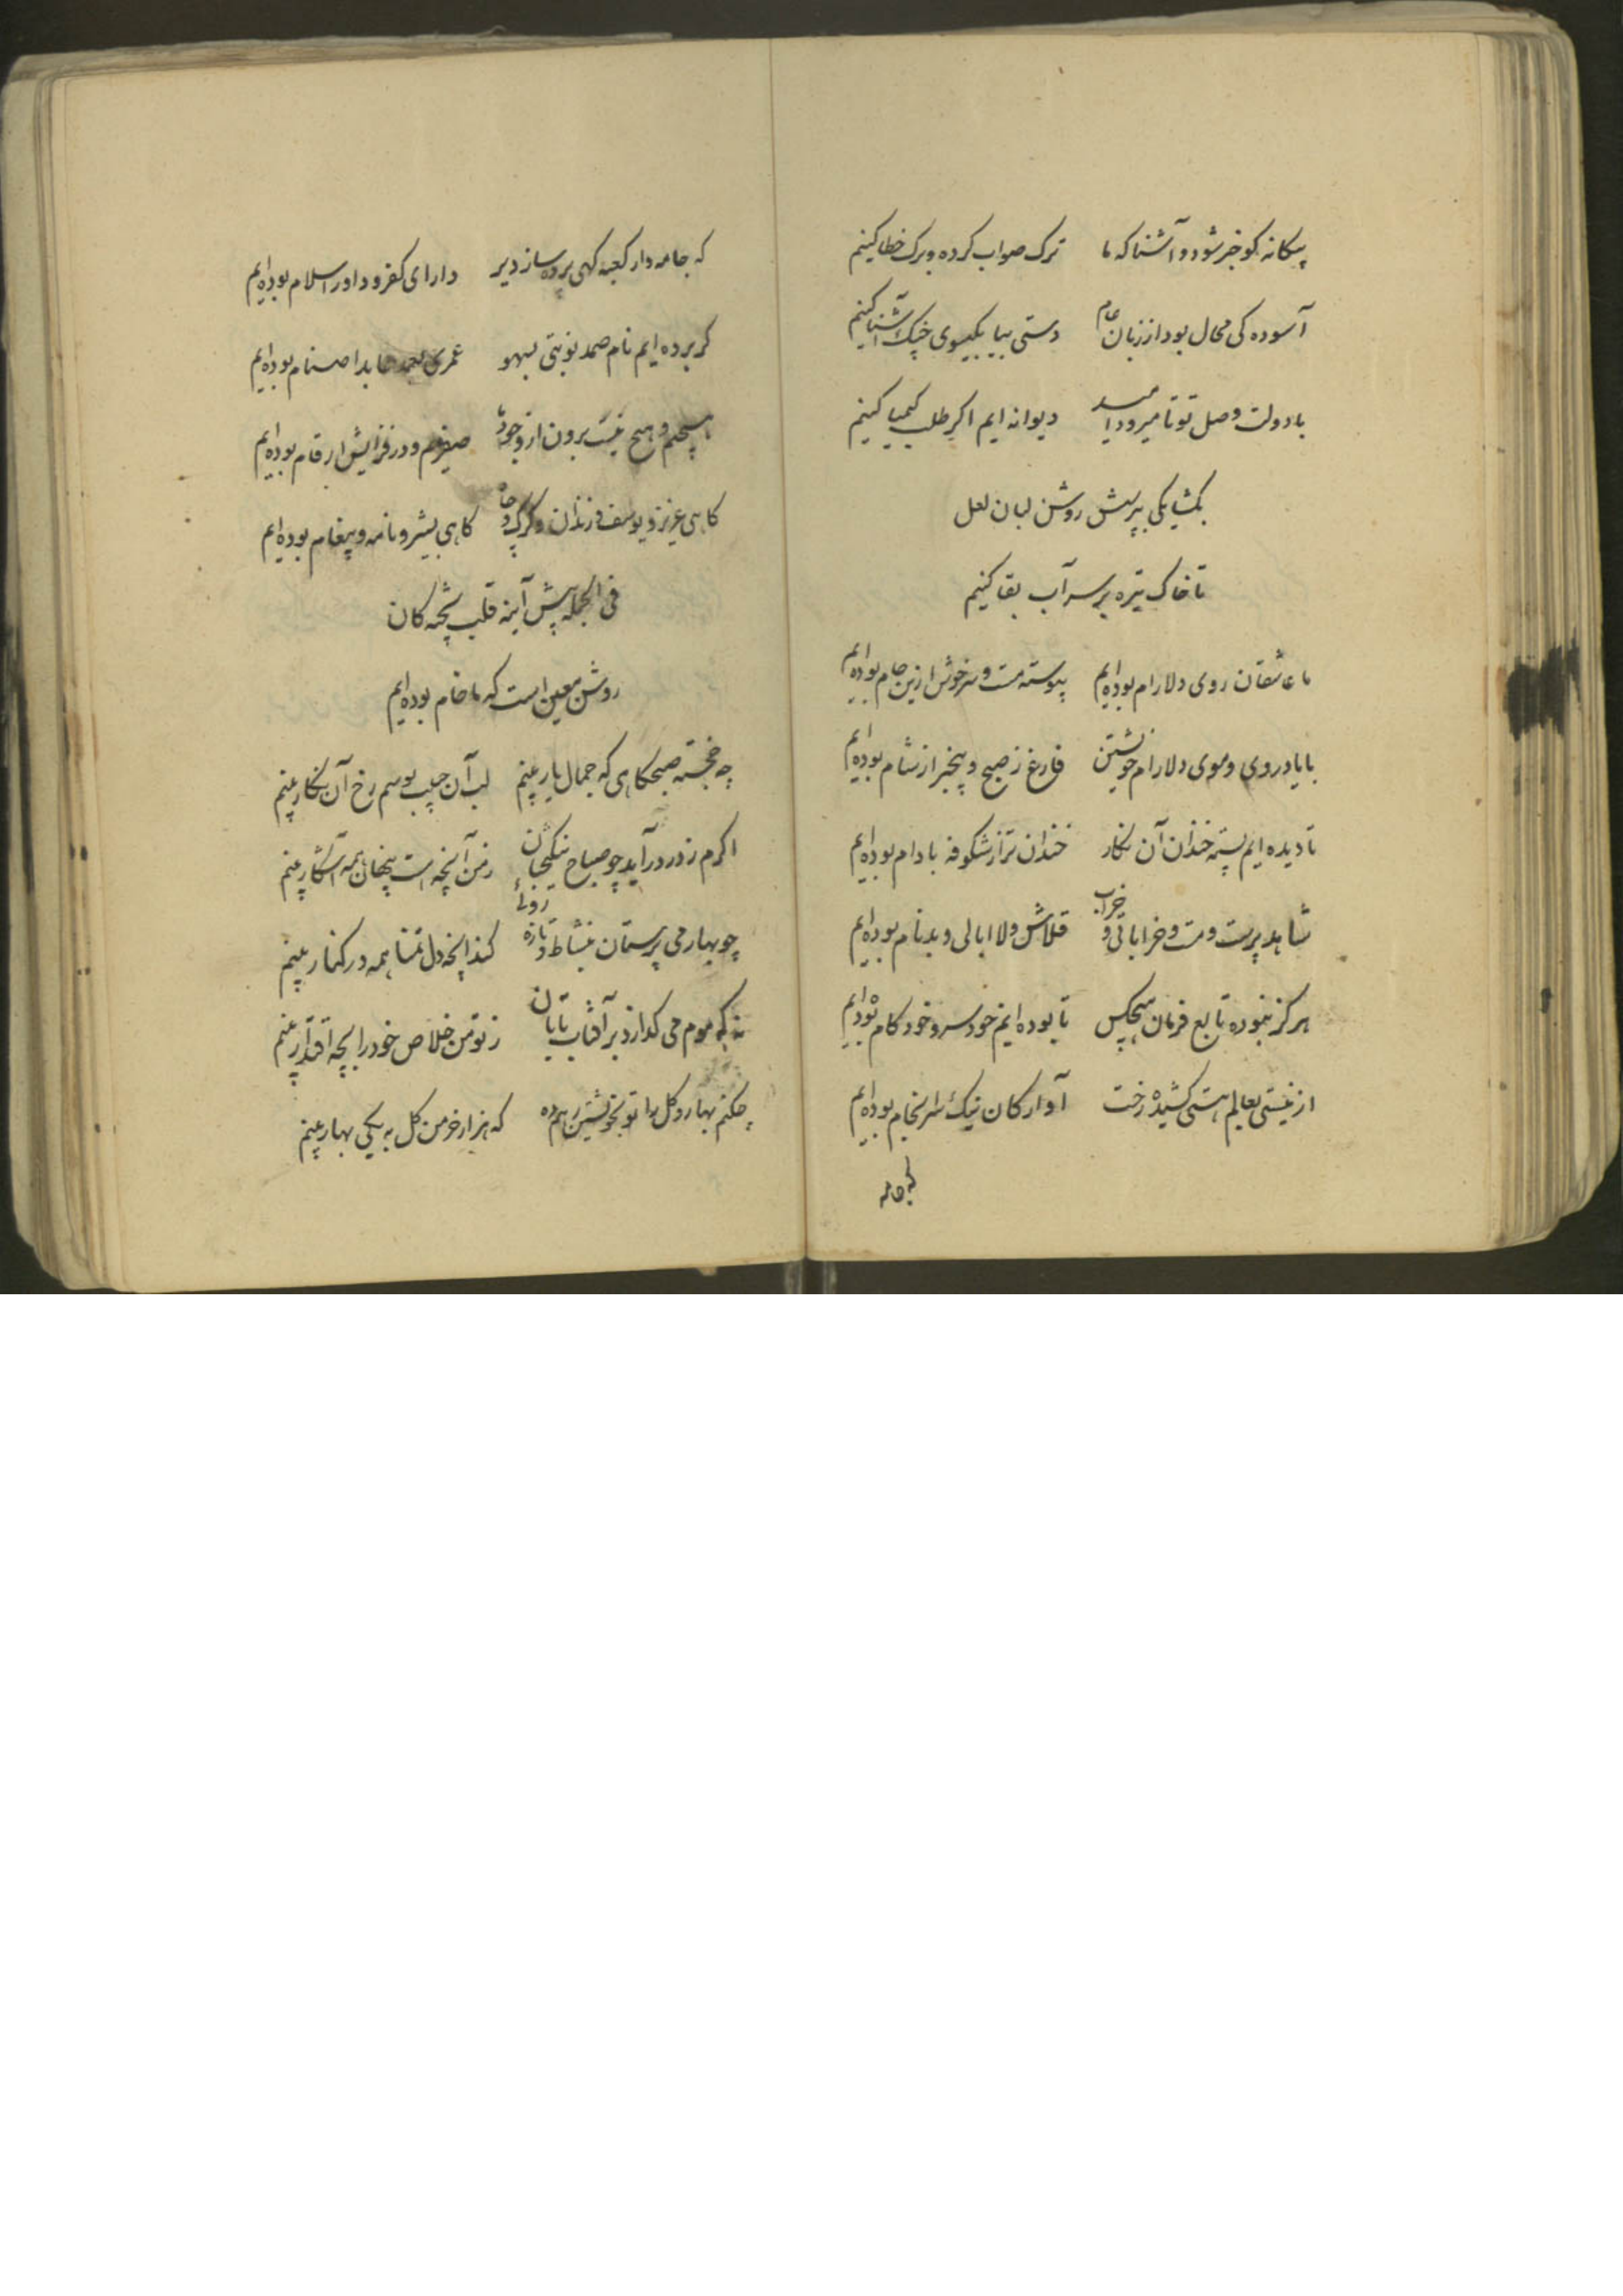 بیکانه کو خبر شود و آشنا که ما ترک صواب کرده و برک خطا کنیم
آسوده کی محال بود از زبان عام دستی بیا بکیسوی چنک آشنا کنیم
با دولت وصل تو تا میرود امید دیوانه ایم اکر طلب کیمیا کنیم
بکشا یکی بپرسش روشن لبان لعل
تا خاک تیره بر سر آب بقا کنیم
ما عاشقان روی دلارام بوده‌ایم پیوسته مست و سرخوش ازین جام بوده‌ایم
با یاد روی و موی دلارام خویشتن فارغ ز صبح و بیخبر از شام بوده‌ایم
تا دیده ایم پسته خندان آن نکار خندان تر از شکوفه بادام بوده‌ایم
شاهد پرست و مست و خراباتی و خراب قلاش و لا ابالی و بدنام بوده‌ایم
هرکز نبوده تابع فرمان هیچکس تا بوده ایم خودسر و خودکام بوده‌ایم
از نیستی بعالم هستی کشیده رخت آوارکان نیک سرانجام بوده‌ایم
که جامه
که جامه دار کعبه کهی پرده ساز دیر دارای کفر و داور اسلام بوده‌ایم
کر برده ایم نام صمد نوبتی بسهو عمری بعمد عابد اصنام بوده‌ایم
هیچیم و هیچ نیست برون از وجود ما صفریم و در فزایش ارقام بوده‌ایم
کاهی عزیز و یوسف و زندان و کرک و چاه کاهی بشیر و نامه و پیغام بوده‌ایم
فی الجمله پیش آینه قلب پخته کان
روشن معین است که ما خام بوده‌ایم
چه خجسته صبحکاهی که جمال یار بینم لب آن حبیب بوسم رخ آن نکار بینم
اکرم ز در درآید چو صباح نیکبختان ز من آنچه است پنهان همه آشکار بینم
چو بهار می پرستان بنشاط و تازه روئی کند آنچه دل تمنا همه در کنار بینم
نه که موم می کدازد بر آفتاب تابان ز تو من خلاص خود را بچه اقتدار بینم
چکنم بهار و کل را تو بخویشتن رهم ده که هزار خرمن کل به یکی بهار بینم